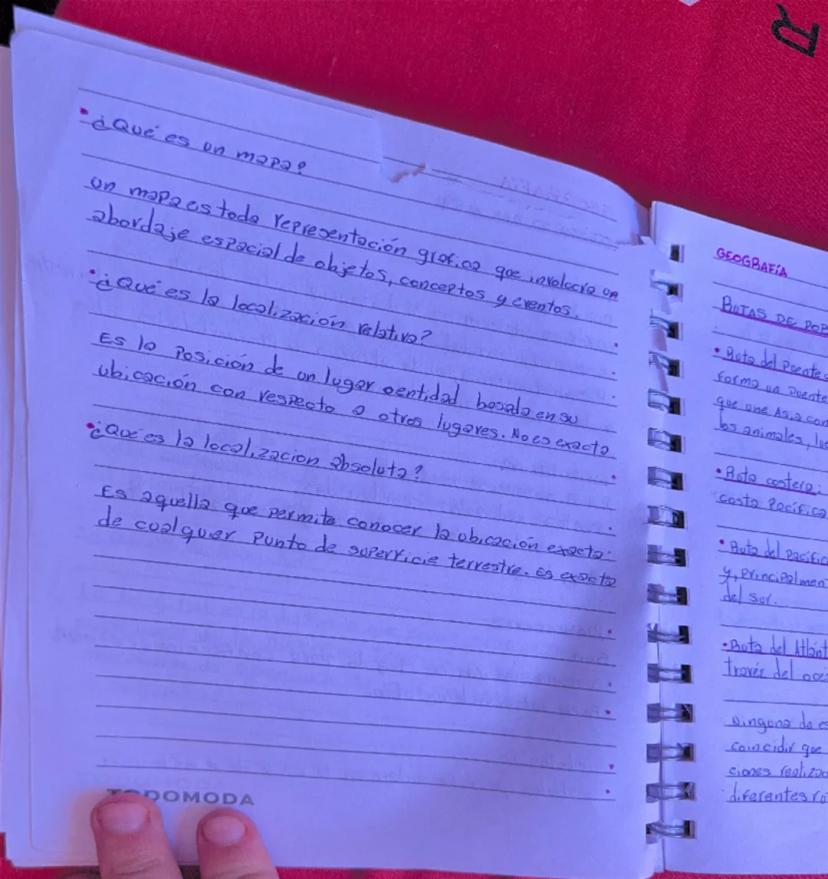 • ¿Qué es un mapa?
Un mapa es toda representación grafica que involucra un
abordaje espacial de objetos, conceptos y eventos.
• ¿Qué es la localización relativa?
Es la posición de un lugar o entidad basada en su
ubicación con respecto a otros lugares. No es exacta
• ¿Qué es la localizacion absoluta?
Es aquella que permite conocer la ubicación exacta
de cualquier punto de superficie terrestre. Es exacta
TODOMODA
GEOGRAFÍA
RUTAS DE POB
• Ruta del Puente
forma un puente
que une Asia con
los animales, lu
• Ruta costera:
costa Pacífica
• Ruta del pacífic
y, principalmen
del sur.
• Ruta del Atlánt
través del oce
ninguna de es
coincidir que
ciones realiza
diferentes ru
R